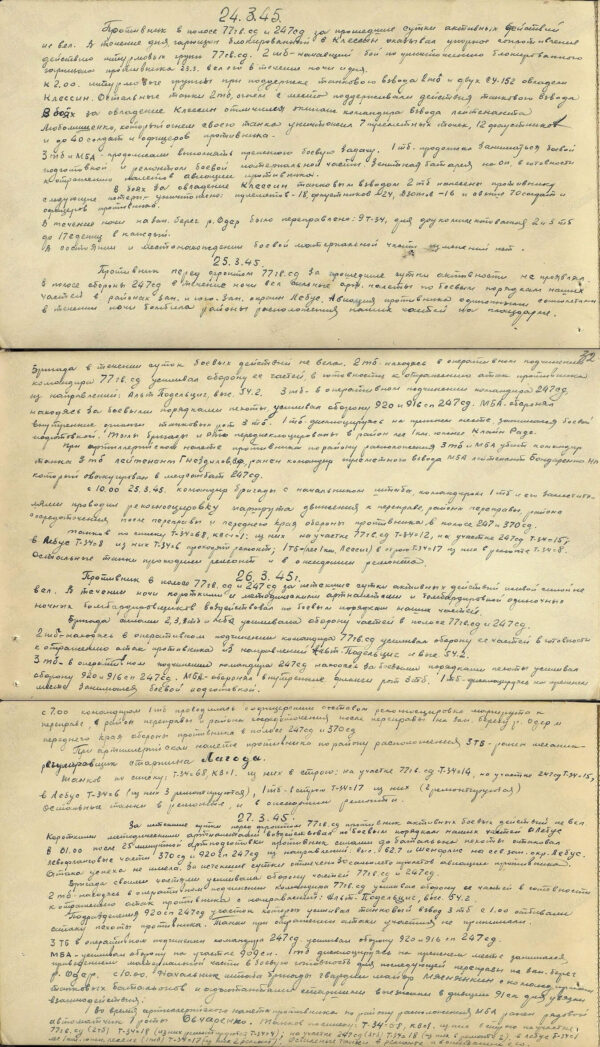 24.3.45.
Противник в полосе 77 гв.сд и 247 сд за прошедшие сутки активных действий
не вел. В течение дня гарнизон блокированный в Клессин оказывал упорное сопротивление
действию штурмовых групп 77 гв.сд. 2 тб - начавший бой по уничтожению блокированного
гарнизона противника 23.3. вел его в течение ночи и дня.
К 2.00. штурмовые группы при поддержке танкового взвода 2 тб и двух СУ-152 овладели
Клессин. Остальные танки 2 тб, огнем с места поддерживали действия танкового взвода
В боях за овладение Клессин отличился экипаж командира взвода лейтенанта
который огнем своего танка уничтожил 7 пулеметных точек, 12 фаустников
и до 40 солдат и офицеров противника.
3 тб и МБА - продолжали выполнять прежнюю боевую задачу. 1 тб. продолжал заниматься боевой
подготовкой и ремонтом боевой материальной части. Зенитная батарея на ОП в готовности
к отражению налетов авиации противника.
В боях за овладение Клессин танковым взводом 2 тб нанесены противнику
следующие потери: уничтожено: пулеметов - 18, фаустников - 24, взято - 16 и около 70 солдат и
офицеров противника.
В течение ночи на зап. берег р. Одер было переправлено: 9 Т-34, для доукомплектования 2 и 3 тб
до 17 единиц в каждый.
В состоянии и местонахождении боевой материальной части изменений нет.
25.3.45.
Противник перед фронтом 77 гв.сд за прошедшие сутки активности не проявлял.
В полосе обороны 247 сд в течение ночи вел сильные арт. налеты по боевым порядкам наших
частей в районах зап. и юго-зап. окраин Лебус. Авиация противника одиночными самолетами
в течении ночи бомбила районы расположения наших частей на плацдарме.
32
Бригада в течении суток боевых действий не вела. 2 тб находясь в оперативном подчинении
командира 77 гв.сд усиливал оборону ее частей, в готовности к отражению атак противника
из направлений: Альт Подельциг, выс. 54.2. 3 тб - в оперативном подчинении командира 247 сд,
находясь за боевыми порядками пехоты, усиливал оборону 920 и 916 сп 247 сд. МБА - обороняя
внутренние фланги танковых рот 3 тб. 1 тб дислоцируясь на прежнем месте, занимался боевой
подготовкой. Тылы бригады и передислоцированы в район лес 1 км. южнее Клайн Раде.
При артиллерийском налете противника по району расположения 3 тб и МБА убит командир
танка 3 тб лейтенант ранен командир пулеметного взвода МБА лейтенант Бондаренко
который эвакуирован в медсанбат 247 сд.
С 10.00 25.3.45. командир бригады с начальником штаба, командиром 1 тб и его заместителями
проводил рекогносцировку маршрута движения к переправе, района переправы, района
сосредоточения после переправы и переднего края обороны противника в полосе 247 и 370 сд.
Танков по списку: Т-34=68, КВ=1: из них на участке 77 гв.сд Т-34=12, на участке 247 сд Т-34=15,
в Лебус Т-34=8 из них Т-34=6 проходят ремонт, 1 тб = Т-34=17 из них в ремонте Т-34=8.
Остальные танки проходят ремонт и в ожидании ремонта.
26.3.45г.
Противник в полосе 77 гв.сд и 247 сд за истекшие сутки активных действий живой силой не
вел. В течении ночи короткими и методическими артналетами и бомбардировкой одиночных
ночных бомбардировщиков воздействовал по боевым порядкам наших частей.
Бригада силами 2, 3 тб и МБА усиливала оборону частей в полосе 77 гв.сд и 247 сд.
2 тб - находясь в оперативном подчинении командира 77 гв.сд, усиливал оборону ее частей в готовности
к отражению атак противника из направлений Альт-Подельциг и выс. 54.2.
3 тб - в оперативном подчинении командира 247 сд находясь за боевыми порядками пехоты усиливал
оборону 920 и 916 сп 247 сд. МБА - обороняя внутренние фланги рот 3 тб. 1 тб - дислоцируясь на прежнем
месте занимался боевой подготовкой.
С 7.00 командиром 1 тб проводилась с офицерским составом рекогносцировка маршрута к
переправе, в район переправы и района сосредоточения после переправы на зап. берегу р. Одер и
переднего края обороны противника в полосе 247 сд и 370 сд.
При артиллерийском налете противника по району расположения 3 ТБ - ранен механик-
регулировщик старшина Лагода.
Танков по списку: Т-34=68, КВ=1. из них в строю: на участке 77 гв.сд Т-34=14, на участке 247 сд Т-34=15,
в Лебус Т-34=6 (из них 3 ремонтируются), 1 тб - в строю Т-34=17 из них (2 ремонтируются)
Остальные танки в ремонте, и в ожидании ремонта.
27.3.45г.
За истекшие сутки перед фронтом 77 гв.сд противник активных боевых действий не вел
Короткими методическими артналетами воздействовал по боевым порядкам наших частей в Лебус
В 01.00 после 25 минутной артподготовки противник силами до батальона пехоты атаковал
левофланговые части 370 сд и 920 сп 247 сд из направлений: выс. 62.7 и на сев. зап. окр. Лебус.
Атака успеха не имела. За истекшие сутки отмечено 30 самолетопролетов авиации противника.
Бригада своими частями усиливала оборону частей 77 гв.сд и 247 сд.
2 тб находясь в оперативном подчинении командира 77 гв.сд усиливал оборону ее частей в готовности
к отражению атак противника с направлений: Альт-Подельциг, выс. 54.2.
Подразделения 920 сп 247 сд участок которых усиливал танковый взвод 3 тб с 1.00 отбивали
атаку пехоты противника. Танки при отражении атаки участия не принимали.
3 ТБ в оперативном подчинении командира 247 сд усиливал оборону 920 и 916 сп 247 сд.
МБА - усиливал оборону на участке 920 сп. 1 тб дислоцируясь на прежнем месте занимался
приведением материальной части в боевую готовность для последующей переправы на зап. берег
р. Одер. С 10.00. Начальник штаба бригады гвардии майор с командирами
танковых батальонов и адъютантами старшими выезжали в дивизии 91 ск для увязки
взаимодействия.
Во время артиллерийского налета противника по району расположения МБА ранен рядовой
автоматчик 1 роты Овчаренко. Танков по списку: Т-34=68, КВ=1. из них в строю на участке:
77 гв.сд (2 тб) Т-34=18